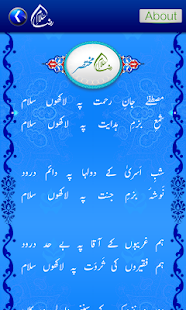 About
مختصر
مصطفےٰ جانِ رحمت پہ لاکھوں سلام
شمعِ بزمِ ہدایت پہ لاکھوں سلام
شبِ اسریٰ کے دولہا پہ دائم درود
نوشۂ بزمِ جنت پہ لاکھوں سلام
ہم غریبوں کے آقا پہ بے حد درود
ہم فقیروں کی ثروت پہ لاکھوں سلام